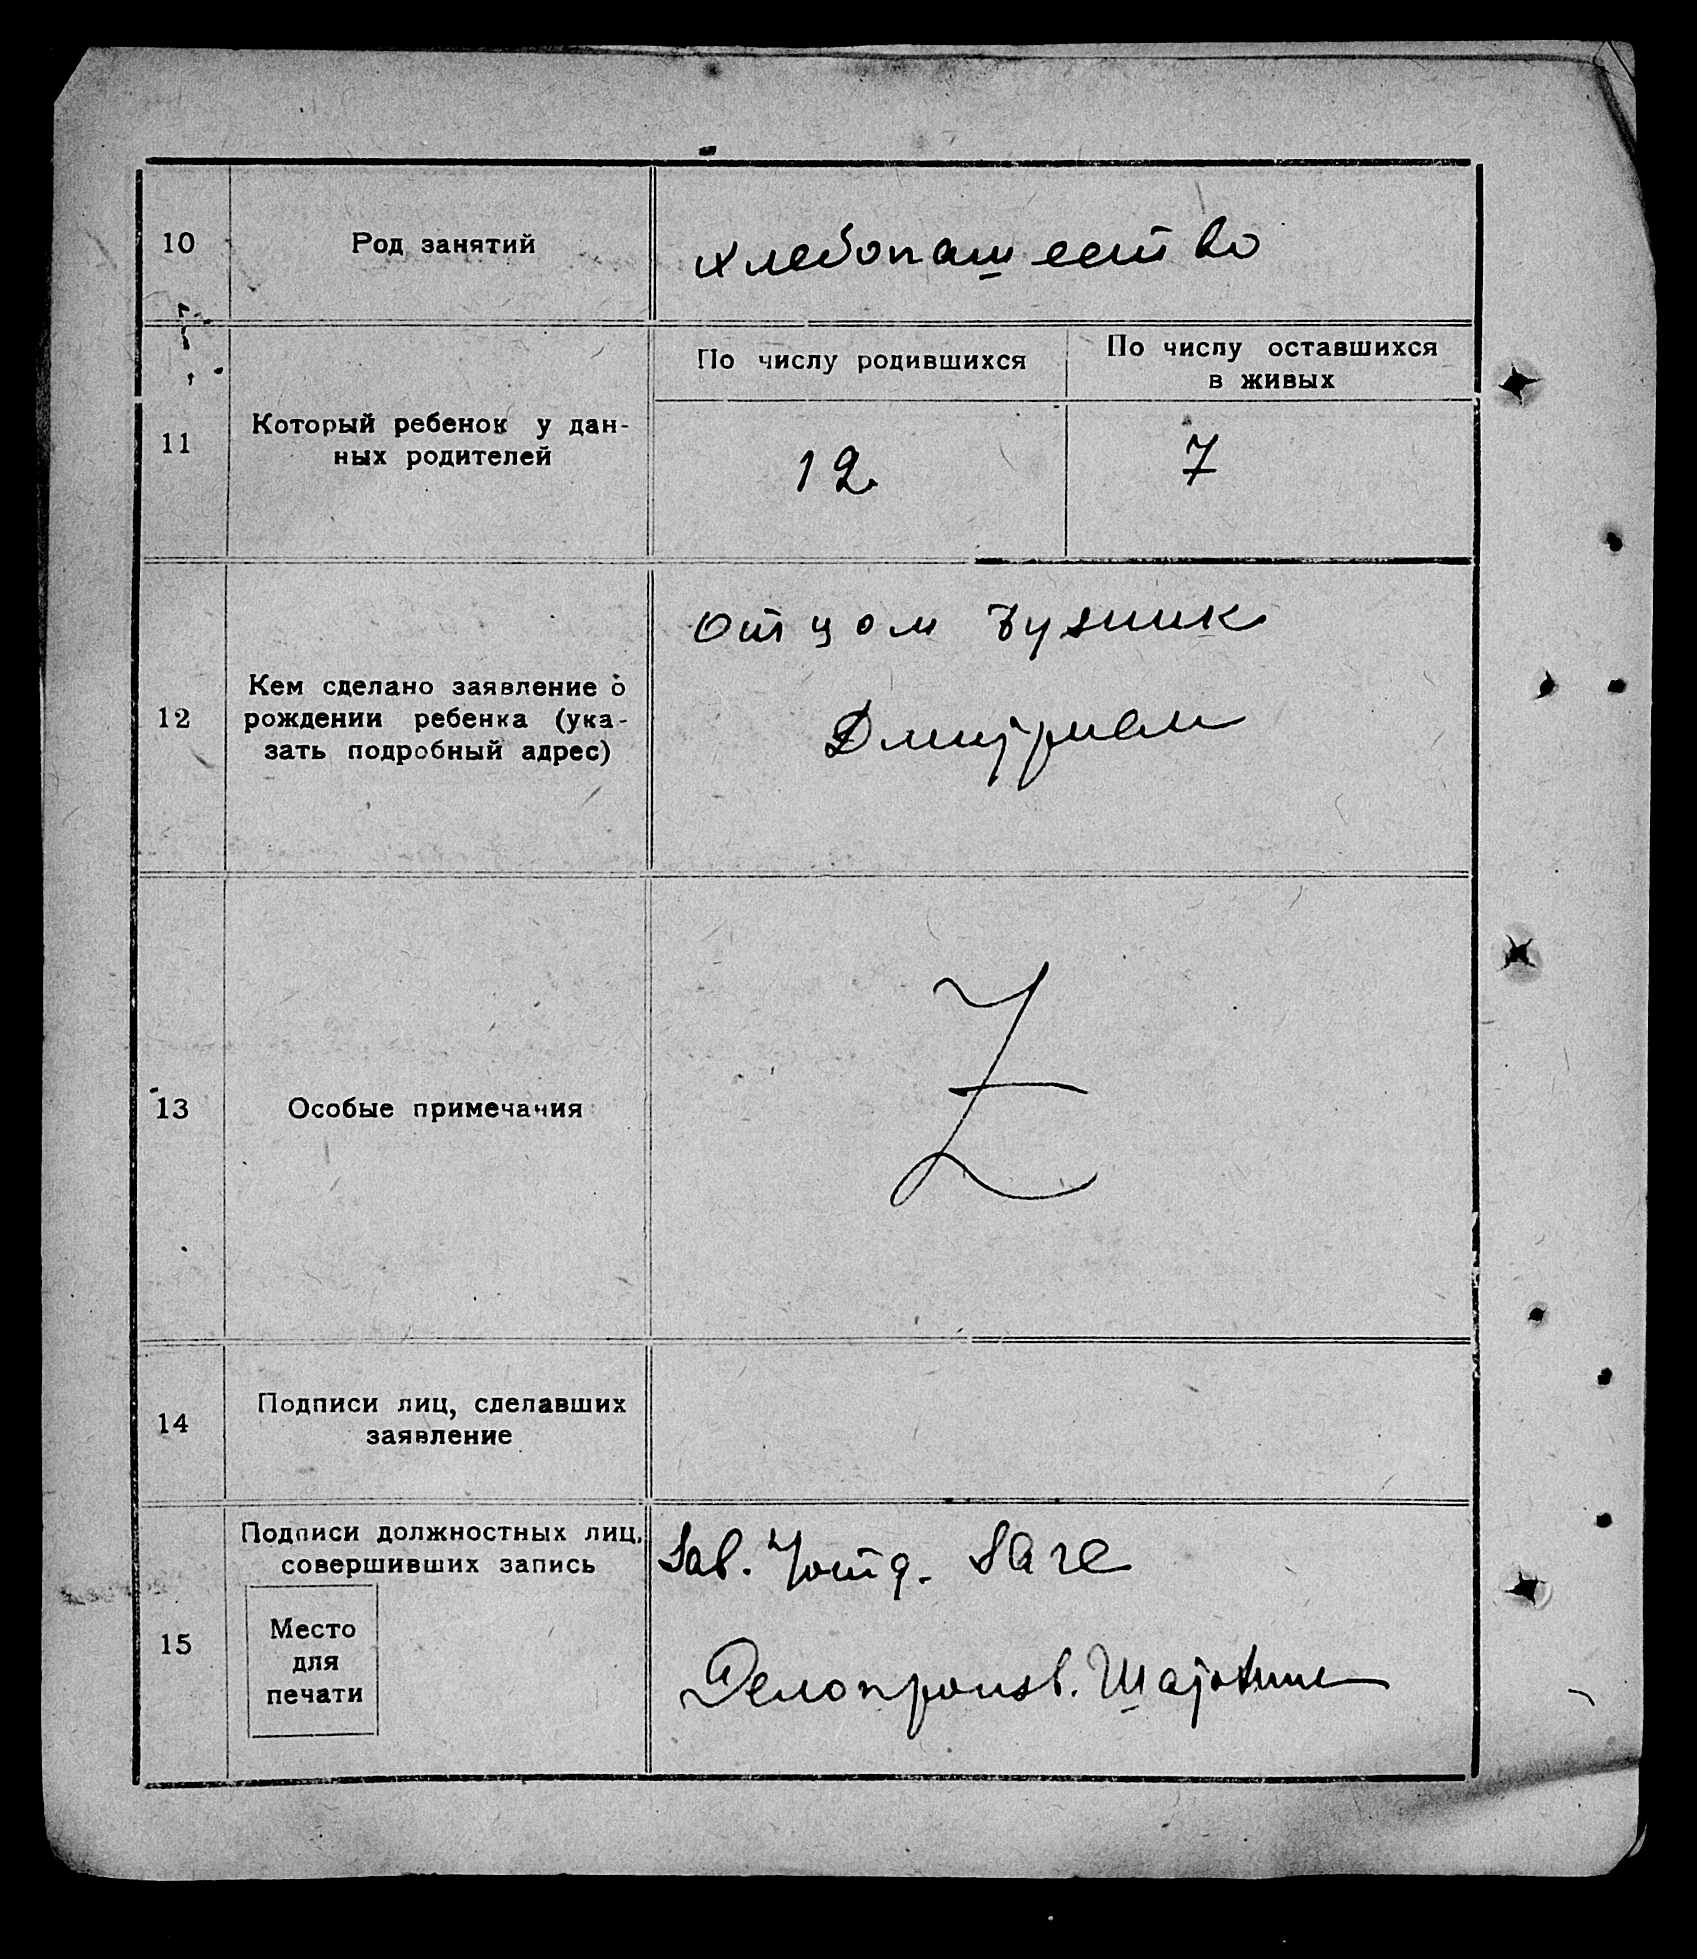 10
Род занятий
хлебопашество
11
Который ребенок у дан-
ных родителей
По числу родившихся
По числу оставшихся
в живых
12
7
12
Кем сделано заявление о
рождении ребенка (ука-
зать подробный адрес)
отцом
Дмитрием
13
Особые примечания
Z
14
Подписи лиц, сделавших
заявление
15
Подписи должностных лиц,
совершивших запись
Место
для
печати
Зав.
Делопроизв.